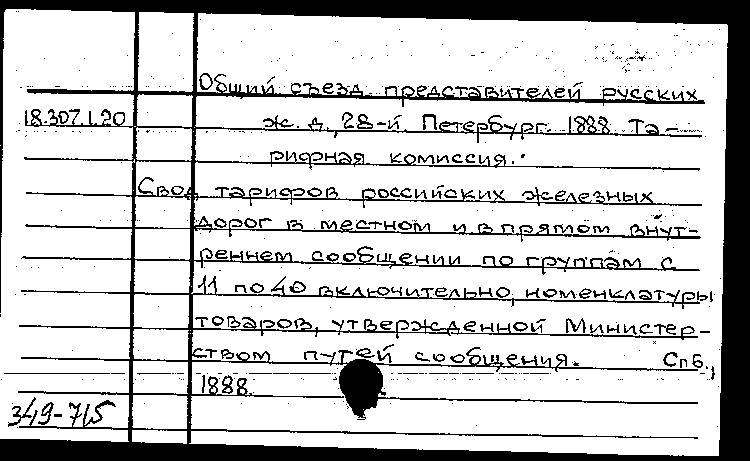 Общий съезд представителей русских
18.307.1.20 ж. д., 28-й. Петербург. 1888. Та-
рифная комиссия.
Свод тарифов российских железных
дорог в местном и в прямом внут-
реннем сообщении по группам с
11 по 40 включительно, номенклатуры
товаров, утвержденной Министер-
ством путей сообщения. Спб.,
1888.
349-715